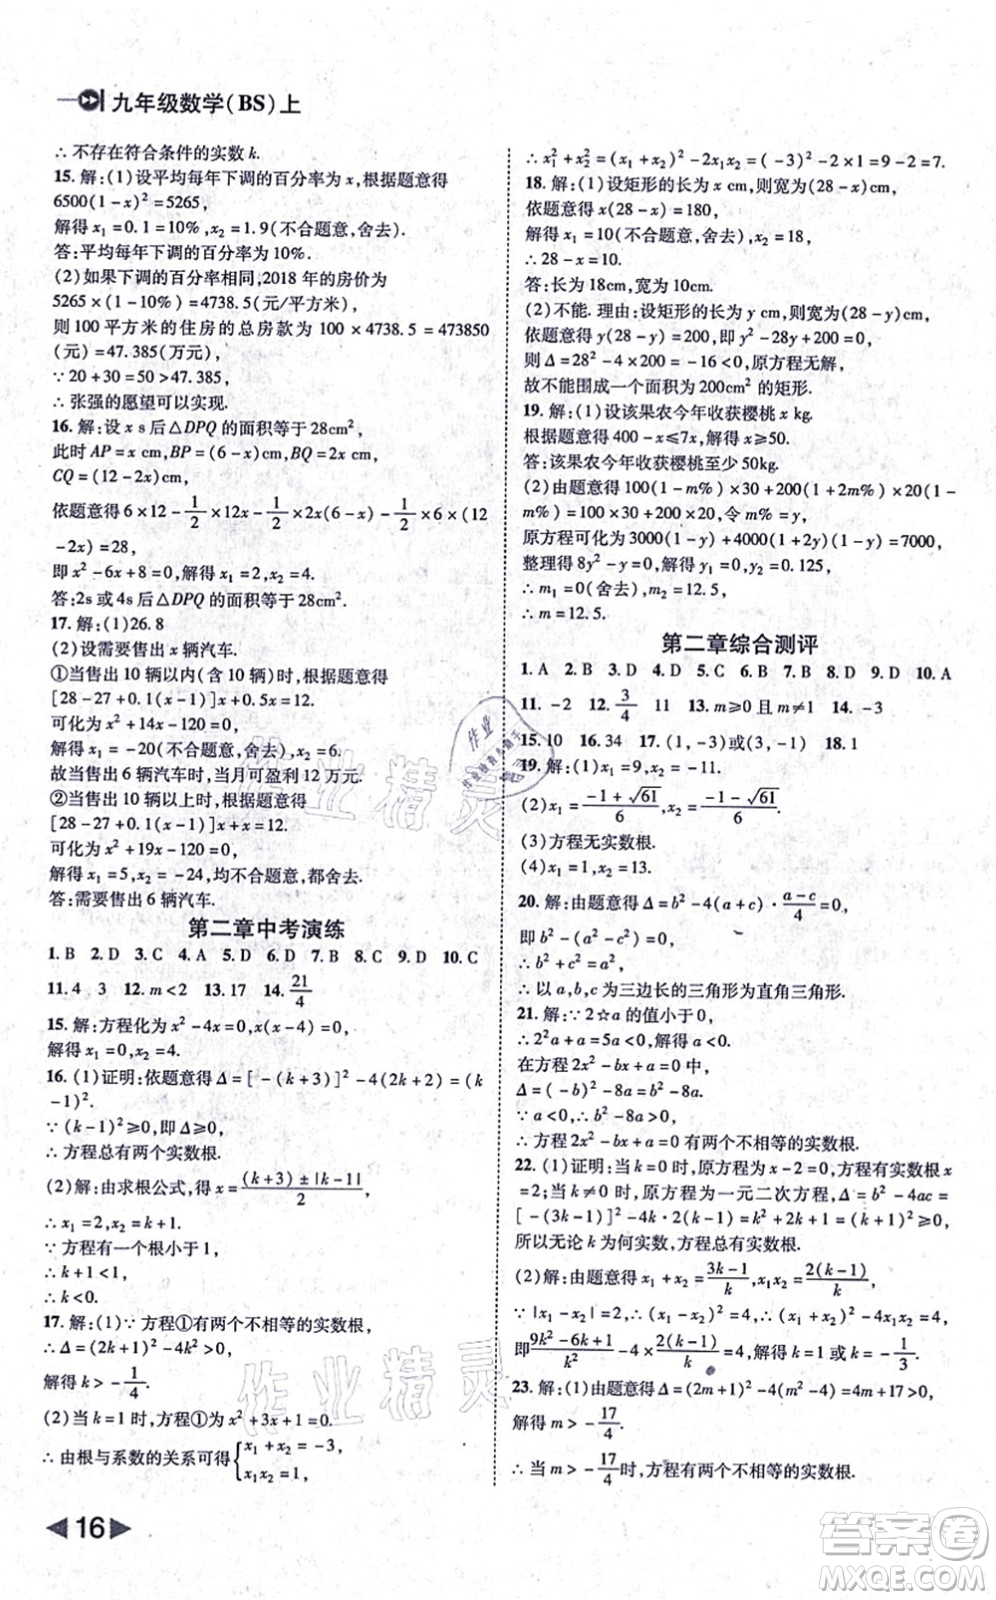 九年级数学(BS)上
∴不存在符合条件的实数k.
15.解:(1)设平均每年下调的百分率为x,根据题意得
6500(1-x)²=5265,
解得x₁=0.1=10%,x₂=1.9(不合题意,舍去).
答:平均每年下调的百分率为10%.
(2)如果下调的百分率相同,2018年的房价为
5265×(1-10%)=4738.5(元/平方米),
则100平方米的住房的总房款为100×4738.5=473850
(元)=47.385(万元),
∵20+30=50>47.385,
∴张强的愿望可以实现.
16.解:设x s后△DPQ的面积等于28cm²,
此时AP=x cm,BP=(6-x)cm,BQ=2x cm,
CQ=(12-2x)cm,
依题意得6×12-1/2×12x-1/2×2x(6-x)-1/2×6×(12
-2x)=28,
即x²-6x+8=0,解得x₁=2,x₂=4.
答:2s或4s后△DPQ的面积等于28cm².
17.解:(1)26.8
(2)设需要售出x辆汽车.
①当售出10辆以内(含10辆)时,根据题意得
[28-27+0.1(x-1)]x+0.5x=12.
可化为x²+14x-120=0,
解得x₁=-20(不合题意,舍去),x₂=6.
故当售出6辆汽车时,当月可盈利12万元.
②当售出10辆以上时,根据题意得
[28-27+0.1(x-1)]x+x=12.
可化为x²+19x-120=0,
解得x₁=5,x₂=-24,均不合题意,都舍去.
答:需要售出6辆汽车.
第二章中考演练
1.B 2.D 3.D 4.A 5.D 6.D 7.D 8.C 9.D 10.C
11.4 3 12.m<2 13.17 14.21/4
15.解:方程化为x²-4x=0,x(x-4)=0,
解得x₁=0,x₂=4.
16.(1)证明:依题意得Δ=[-(k+3)]²-4(2k+2)=(k
-1)².
∵(k-1)²≥0,即Δ≥0,
∴方程总有两个实数根.
(2)解:由求根公式,得x=((k+3)±|k-1|)/2
∴x₁=2,x₂=k+1.
∵方程有一个根小于1,
∴k+1<1,
∴k<0.
17.解:(1)∵方程①有两个不相等的实数根,
∴Δ=(2k+1)²-4k²>0,
解得k>-1/4.
(2)当k=1时,方程①为x²+3x+1=0.
∴由根与系数的关系可得{x₁+x₂=-3,
x₁x₂=1,
16
∴x₁²+x₂²=(x₁+x₂)²-2x₁x₂=(-3)²-2×1=9-2=7.
18.解:(1)设矩形的长为x cm,则宽为(28-x)cm,
依题意得x(28-x)=180,
解得x₁=10(不合题意,舍去),x₂=18,
∴28-x=10.
答:长为18cm,宽为10cm.
(2)不能.理由:设矩形的长为y cm,则宽为(28-y)cm,
依题意得y(28-y)=200,即y²-28y+200=0,
则Δ=28²-4×200=-16<0,原方程无解,
故不能围成一个面积为200cm²的矩形.
19.解:(1)设该果农今年收获樱桃x kg.
根据题意得400-x≤7x,解得x≥50.
答:该果农今年收获樱桃至少50kg.
(2)由题意得100(1-m%)×30+200×(1+2m%)×20(1
-m%)=100×30+200×20,令m%=y,
原方程可化为3000(1-y)+4000(1+2y)(1-y)=7000,
整理得8y²-y=0,解得y₁=0,y₂=0.125,
∴m₁=0(舍去),m₂=12.5,
∴m=12.5.
第二章综合测评
1.A 2.B 3.D 4.D 5.C 6.B 7.B 8.D 9.D 10.A
11.-2 12.3/4 11 13.m≥0且m≠1 14.-3
15.10 16.34 17.(1,3)或(3,1) 18.1
19.解:(1)x₁=9,x₂=-11.
(2)x₁=(-1+√61)/6,x₂=(-1-√61)/6.
(3)方程无实数根.
(4)x₁=1,x₂=13.
20.解:由题意得Δ=b²-4(a+c)·(a-c)/4=0,
即b²-(a²-c²)=0,
∴b²+c²=a²,
∴以a,b,c为三边长的三角形为直角三角形.
21.解:∵2☆a的值小于0,
∴2²a+a=5a<0,解得a<0.
在方程2x²-bx+a=0中,
Δ=(-b)²-8a=b²-8a.
∵a<0,∴b²-8a>0,
∴方程2x²-bx+a=0有两个不相等的实数根.
22.(1)证明:当k=0时,原方程为x-2=0,方程有实数根x
=2;当k≠0时,原方程为一元二次方程,Δ=b²-4ac=
[-(3k-1)]²-4k·2(k-1)=k²+2k+1=(k+1)²≥0,
所以无论k为何实数,方程总有实数根.
(2)解:由题意得x₁+x₂=(3k-1)/k,x₁x₂=2(k-1)/k,
∵|x₁-x₂|=2,∴(x₁-x₂)²=4,∴(x₁+x₂)²-4x₁x₂=4,
即(9k²-6k+1)/k²-4×2(k-1)/k=4,解得k=1或k=-1/3.
23.解:(1)由题意得Δ=(2m+1)²-4(m²-4)=4m+17>0,
解得m>-17/4.
∴当m>-17/4时,方程有两个不相等的实数根.
作业精灵
作业精灵
答案圈
MXQE.COM